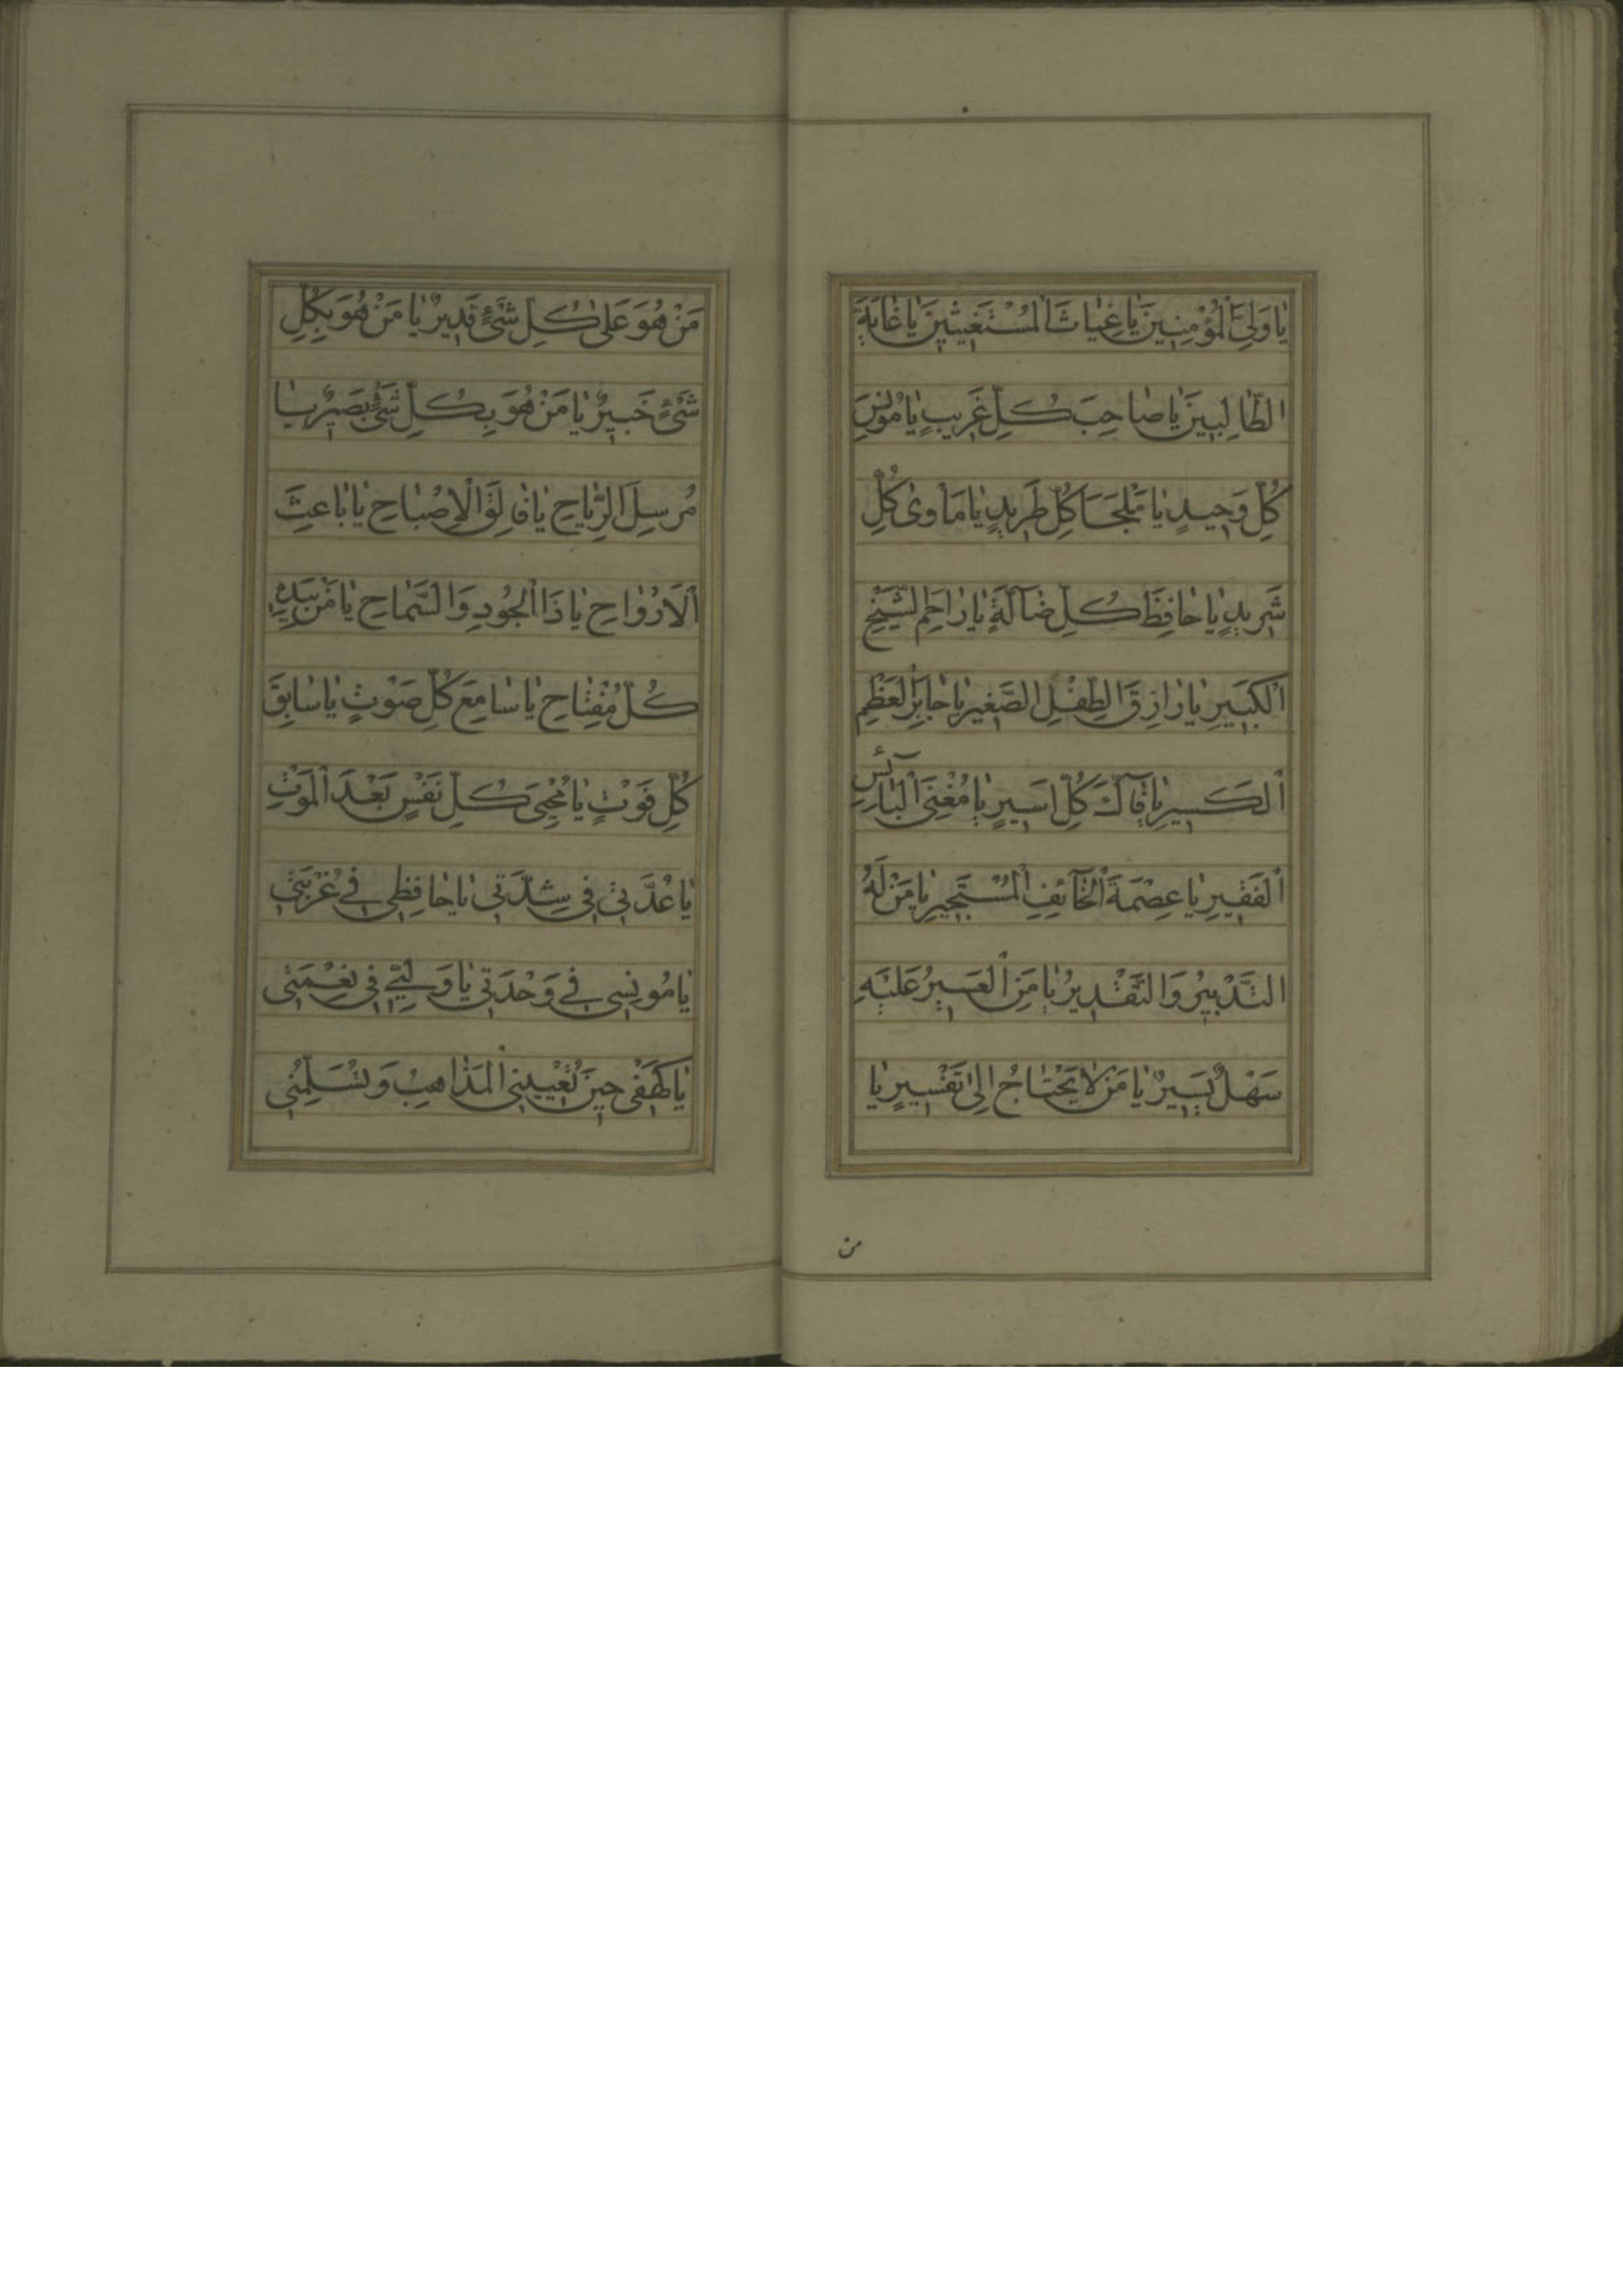 يَا وَلِيَّ الْمُؤْمِنِينَ يَا غِيَاثَ الْمُسْتَغِيثِينَ يَا غَايَةَ
الطَّالِبِينَ يَا صَاحِبَ كُلِّ غَرِيبٍ يَا مُونِسَ
كُلِّ وَحِيدٍ يَا مَلْجَأَ كُلِّ طَرِيدٍ يَا مَاْوىٰ كُلِّ
شَرِيدٍ يَا حَافِظَ كُلِّ ضَآلَّةٍ يَا رَاحِمَ الشَّيْخِ
الْكَبِيرِ يَا رَازِقَ الطِّفْلِ الصَّغِيرِ يَا جَابِرَ الْعَظْمِ
الْكَسِيرِ يَا فَآكَّ كُلِّ اَسِيرٍ يَا مُغْنِيَ الْبَآئِسِ
الْفَقِيرِ يَا عِصْمَةَ الْخَآئِفِ الْمُسْتَجِيرِ يَا مَنْ لَهُ
التَّدْبِيرُ وَالتَّقْدِيرُ يَا مَنِ الْعَسِيرُ عَلَيْهِ
سَهْلٌ يَسِيرٌ يَا مَنْ لَا يَحْتَاجُ اِلىٰ تَفْسِيرٍ يَا
من
مَنْ هُوَ عَلىٰ كُلِّ شَيْءٍ قَدِيرٌ يَا مَنْ هُوَ بِكُلِّ
شَيْءٍ خَبِيرٌ يَا مَنْ هُوَ بِكُلِّ شَيْءٍ بَصِيرٌ يَا
مُرْسِلَ الرِّيَاحِ يَا فَالِقَ الْاِصْبَاحِ يَا بَاعِثَ
الْاَرْوَاحِ يَا ذَا الْجُودِ وَالسَّمَاحِ يَا مَنْ بِيَدِهِ
كُلُّ مِفْتَاحٍ يَا سَامِعَ كُلِّ صَوْتٍ يَا سَابِقَ
كُلِّ فَوْتٍ يَا مُحْيِيَ كُلِّ نَفْسٍ بَعْدَ الْمَوْتِ
يَا عُدَّتِي فِي شِدَّتِي يَا حَافِظِي فِي غُرْبَتِي
يَا مُونِسِي فِي وَحْدَتِي يَا وَلِيِّي فِي نِعْمَتِي
يَا كَهْفِي حِينَ تُعْيِينِي الْمَذَاهِبُ وَتُسَلِّمُنِي